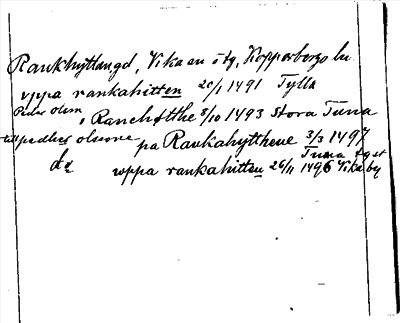 Rankhyttangd, Vika sn o tg, Kopparbergs ln
vppa rankahitten 20/1 1491 Tylla
Peder olson i Ranchøtthe 8/10 1493 Stora Tuna
till pedhers olssone pa Rankahytthene 3/3 1497
Tuna tgst
do wppa rankahitten 26/11 1496 Vika by